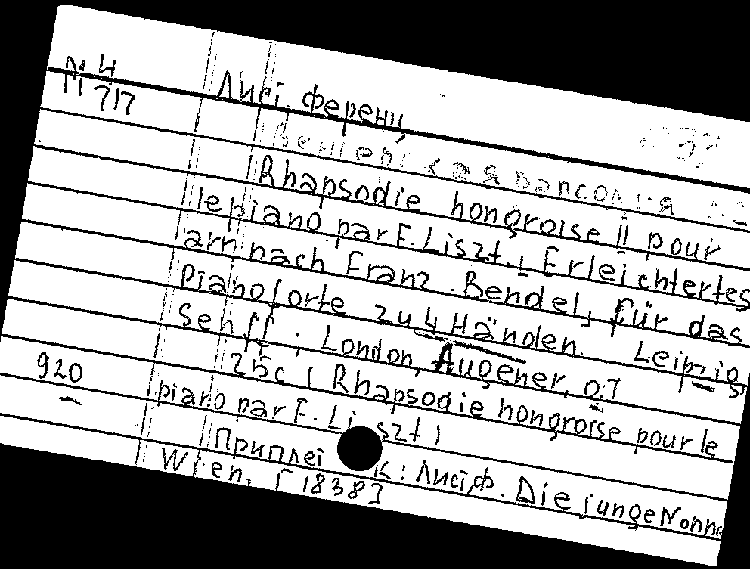 N 4
717
Лист, Ференц
Венгерская рапсодия
Rhapsodie hongroise II pour
le piano par F. Liszt. Erleichtertes
arr. nach Franz Bendel, für das
Pianoforte zu 4 Händen. Leipzig,
Senff; London, Augener, o. J
920 25 c ( Rhapsodie hongroise pour le
piano par F. Liszt )
Приплет к: Лист, Ф. Die junge Nonne
Wien, [1838]